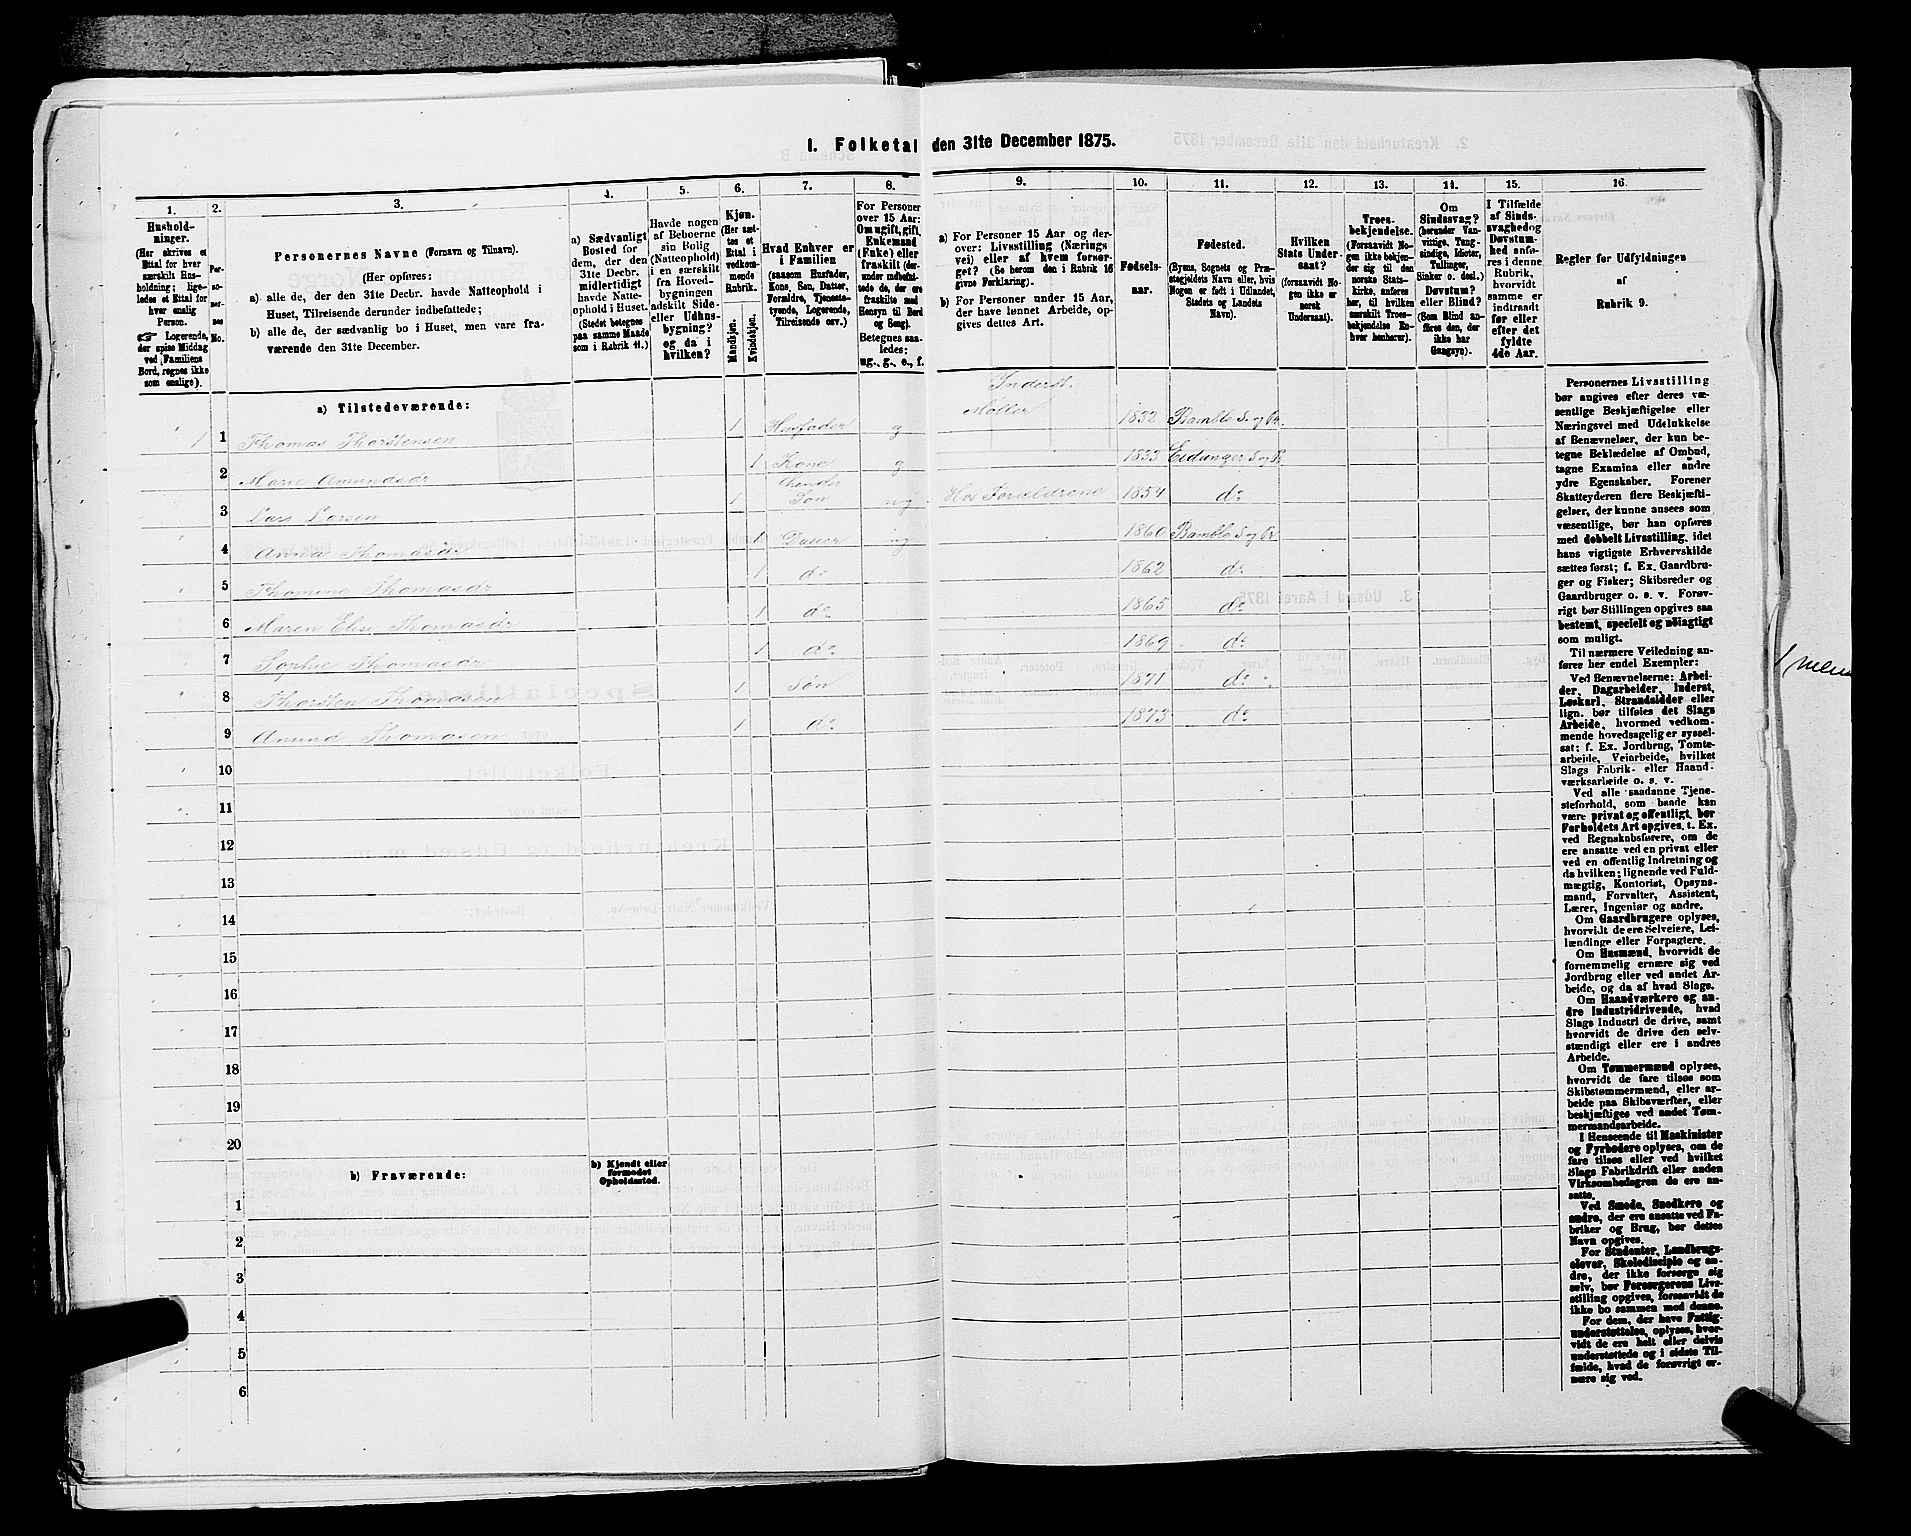 I. Folketal den 31te December 1875.
1. 2. 3. 4. 5. 6. 7. 8. 9. 10. 11. 12. 13. 14. 15. 16.
Hushold-
ninger.
(Her skrives et
Ettal for hver
særskilt Hus-
holdning; lige-
ledes et Ettal for
hver enslig
Person.
☞ Logerende,
der spise Middag
ved Familiens
Bord, regnes ikke
som enslige).
Per-
so-
ner-
nes
No.
Personernes Navne (Fornavn og Tilnavn).
(Her opføres:
a) alle de, der den 31te Decbr. havde Natteophold i
Huset, Tilreisende derunder indbefattede;
b) alle de, der sædvanlig bo i Huset, men vare fra-
værende den 31te December.
a) Sædvanligt
Bosted for
dem, der den
31te Decbr.
midlertidigt
havde Natte-
ophold i Huset.
(Stedet betegnes
paa samme Maade
som i Rubrik 11.)
Havde nogen
af Beboerne
sin Bolig
(Natteophold)
i en særskilt
fra Hoved-
bygningen
adskilt Side-
eller Udhus-
bygning?
og da i
hvilken?
Kjøn.
(Her sæt-
tes et
Ettal i
vedkom-
mende
Rubrik.
Mandkjøn.
Kvindekjøn.
Hvad Enhver er
i Familien
(saasom Husfader,
Kone, Søn, Datter,
Forældre, Tjeneste-
tyende, Logerende,
Tilreisende osv.)
For Personer
over 15 Aar:
Om ugift, gift,
Enkemand
(Enke) eller
fraskilt (der-
under indbefat-
tede de, der ere
fraskilte med
Hensyn til Bord
og Seng).
Betegnes saa-
ledes:
ug., g., e., f.
a) For Personer 15 Aar og der-
over: Livsstilling (Nærings
vei) eller af hvem forsør-
get? (Se herom den i Rubrik 16
givne Forklaring).
b) For Personer under 15 Aar,
der have lønnet Arbeide, op-
gives dettes Art.
Fødsels-
aar.
Fødested.
(Byens, Sognets og Præ-
stegjeldets Navn eller, hvis
Nogen er født i Udlandet,
Stedets og Landets
Navn).
Hvilken
Stats Under-
saat?
(forsaavidt No-
gen ikke er
norsk
Undersaat).
Troes-
bekjendelse.
(Forsaavidt No-
gen ikke bekjen-
der sig til den
norske Stats-
kirke, anføres
her, til hvilken
særskilt Troes-
bekjendelse En-
hver henhører).
Om
Sindssvag?
(herunder Van-
vittige, Tung-
sindige, Idioter,
Tullinger,
Sinker o. desl.)
Døvstum?
eller Blind?
(Som Blind an-
føres den, der
ikke har
Gangsyn).
I Tilfælde
af Sinds-
svaghed og
Døvstum-
hed anfø-
res i denne
Rubrik,
hvorvidt
samme er
indtraadt
før eller
efter det
fyldte
4de Aar.
Regler for Udfyldningen
af
Rubrik 9.
a) Tilstedeværende:
1 1 Thomas Thorstensen 1 Husfader g Inderst. Møller 1832 Bamble S. og Pr.
2 Marie Amundsdr 1 Kone g 1833 Eidanger S og Pr
3 Lars Larsen 1 hendes Søn ug Hos Forældrene 1854 do
4 Anna Thomasdr 1 Datter ug 1860 Bamble S og Pr
5 Thomine Thomasdr 1 do 1862 do
6 Maren Elise Thomasdr 1 do 1865 do
7 Sophie Thomasdr 1 do 1869 do
8 Thorsten Thomasen 1 Søn 1871 do
9 Amund Thomasen 1 do 1873 do
10
11
12
13
14
15
16
17
18
19
20
b) Fraværende:
b) Kjendt eller
formodet
Opholdssted.
1
2
3
4
5
6
Personernes Livsstilling
bør angives efter deres væ-
sentlige Beskjæftigelse eller
Næringsvei med Udelukkelse
af Benævnelser, der kun be-
tegne Beklædelse af Ombud,
tagne Examina eller andre
ydre Egenskaber. Forener
Skatteyderen flere Beskjæfti-
gelser, der kunne ansees som
væsentlige, bør han opføres
med dobbelt Livsstilling, idet
hans vigtigste Erhvervskilde
sættes først; f. Ex. Gaardbru-
ger og Fisker; Skibsreder og
Gaardbruger o. s. v. Forøv-
rigt bør Stillingen opgives saa
bestemt, specielt og nøiagtigt
som muligt.
Til nærmere Veiledning an-
føres her endel Exempler:
Ved Benævnelserne: Arbei-
der, Dagarbeider, Inderst,
Løskarl, Strandsidder eller
lign. bør tilføies det Slags
Arbeide, hvormed vedkom-
mende hovedsagelig er syssel-
sat; f. Ex. Jordbrug, Tomte-
arbeide, Veiarbeide, hvilket
Slags Fabrik- eller Haand-
værksarbeide o. s. v.
Ved alle saadanne Tjene-
steforhold, som baade kan
være privat og offentligt, bør
Forholdets Art opgives, t. Ex.
ved Regnskabsførere, om de
ere ansatte ved en privat eller
ved en offentlig Indretning og
da hvilken; lignende ved Fuld-
mægtig, Kontorist, Opsyns-
mand, Forvalter, Assistent,
Lærer, Ingeniør og andre.
Om Gaardbrugere oplyses,
hvorvidt de ere Selveiere, Lei-
lændinge eller Forpagtere.
Om Husmænd, hvorvidt de
fornemmelig ernære sig ved
Jordbrug eller ved andet Ar-
beide, og da af hvad Slags.
Om Haandværkere og an-
dre Industridrivende, hvad
Slags Industri de drive, samt
hvorvidt de drive den selv-
stændigt eller ere i andres
Arbeide.
Om Tømmermænd oplyses,
hvorvidt de fare tilsøs som
Skibstømmermænd, eller ar-
beide paa Skibsværfter, eller
beskjæftiges ved andet Tøm-
mermandsarbeide.
I Henseende til Maskinister
og Fyrbødere oplyses, om de
fare tilsøs eller ved hvilket
Slags Fabrikdrift eller anden
Virksomhedsgren de ere an-
satte.
Ved Smede, Snedkere og
andre, der ere ansatte ved Fa-
briker og Brug, bør dettes
Navn opgives.
For Studenter, Landbrugs-
elever, Skoledisciple og an-
dre, der ikke forsørge sig
selv, bør Forsørgerens Livs-
stilling opgives, forsaavidt de
ikke bo sammen med denne.
For dem, der have Fattig-
understøttelse, oplyses, hvor-
vidt de ere helt eller delvis
understøttede og i sidste Til-
fælde, hvad de forøvrigt er-
nære sig ved.